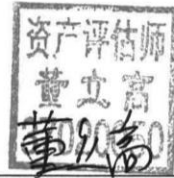 资产评估师
董立高
董立高